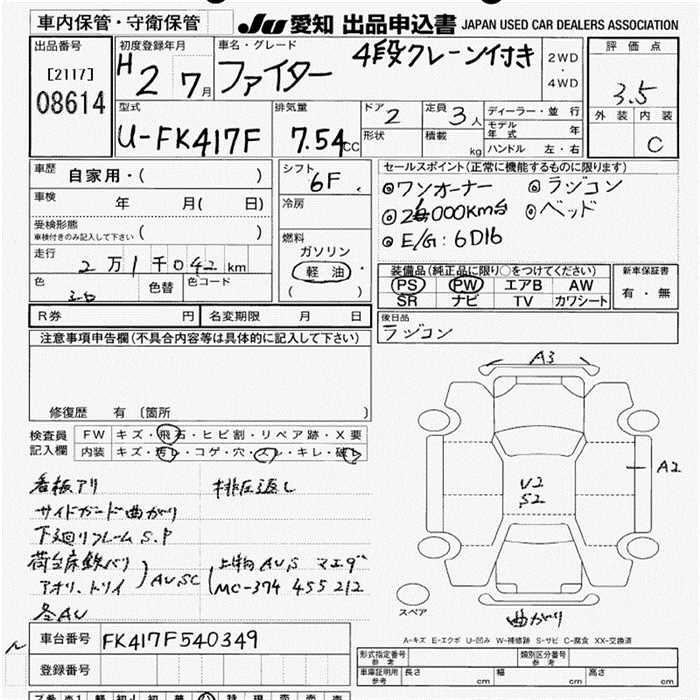 車内保管・守衛保管
JU 愛知 出品申込書 JAPAN USED CAR DEALERS ASSOCIATION
出品番号
[2117]
08614
初度登録年月
H 2 7月
車名・グレード
ファイター 4段クレーン付き
2WD
・
4WD
評価点
3.5
外装 内装
C
型式
U-FK417F
排気量
7.54cc
ドア 2
形状
定員 3人
積載 kg
ディーラー・並行
モデル年式 年
ハンドル 左・右
車歴 自家用・( )
車検 年 月( 日)
受検形態
車検付きのみ記入して下さい ( )
走行 2万1千042km
色
色替
色コード
シフト
6F
冷房
燃料
ガソリン
軽油・
( )
セールスポイント(正常に機能するものに限ります)
◎ワンオーナー ◎ラジコン
000km台 ◎ベッド
◎E/G:6D16
装備品(純正品に限り○をつけてください)
PS PW エアB AW
SR ナビ TV カワシート
新車保証書
有・無
R券 円 名変期限 月 日
後日品
ラジコン
注意事項申告欄(不具合内容等は具体的に記入して下さい)
修復歴 有 〔箇所 〕
検査員
記入欄
FW キズ・飛石・ヒビ割・リペア跡・X要
内装 キズ・汚レ・コゲ・穴・スレ・キレ・破レ
看板アリ 排圧返し
サイドガード曲がり
下廻りフレームS.P
荷台床鉄バリ
アオリ、トリイ AU,SC
上物AU,S マエダ
MC-374 455212
各AU
A3
A2
U2
S2
スペア
曲がり
A-キズ E-エクボ U-凹み W-補修跡 S-サビ C-腐食 XX-交換済
車台番号 FK417F540349
登録番号
形式指定番号
参考
類別区分番号
参考
車庫証明用
参考
長さ cm 幅 cm 高さ cm